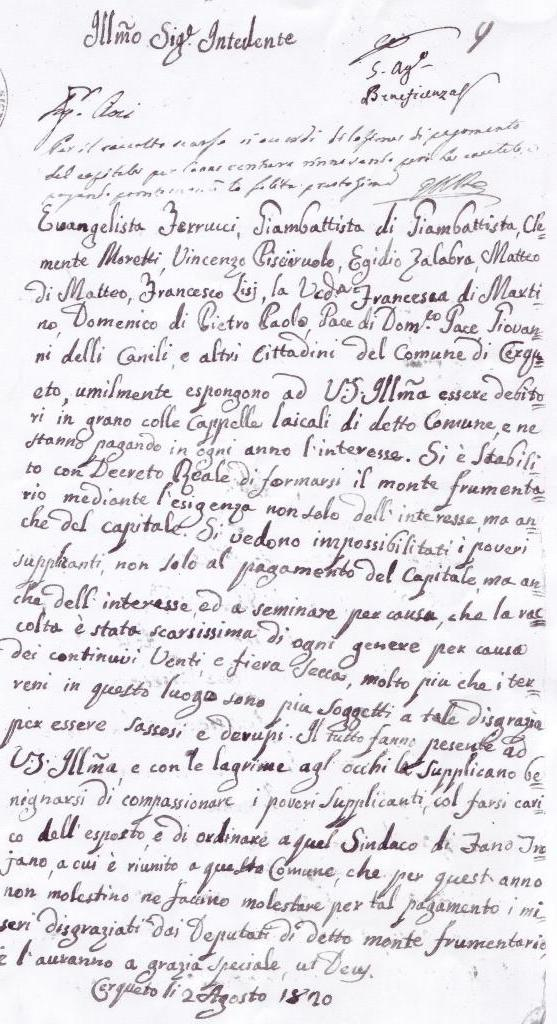 Illm̃o Sig.e Intedente
S. Ag.o
Beneficenza
Per il raccolto scarso si accordi dilazione di pagamento
del capitale per
pagando la solita prestazione
Evangelista Ferrucci, Giambattista di Giambattista, Cle=
mente Moretti, Vincenzo Pisciaruolo, Egidio Zalabra, Matteo
di Matteo, Francesco Lisj, la Vedᵃ Francesca di Marti=
no, Domenico di Pietro Paolo, Pace di Dom.co Pace Giovan=
ni delli Canili, e altri Cittadini del Comune di Cerqu=
eto, umilmente espongono ad V.S. Illm̃a essere debito=
ri in grano colle Cappelle laicali di detto Comune, e ne
stanno pagando in ogni anno l'interesse. Si è stabili=
to con Decreto Reale di formarsi il monte frumenta=
rio mediante l'esigenza non solo dell'interesse, ma an=
che del capitale. Si vedono impossibilitati i poveri
supplicanti, non solo al pagamento del Capitale, ma an=
che dell'interesse, ed a seminare per causa, che la rac=
colta è stata scarsissima di ogni genere per causa
dei continuvi Venti, e fiera secca, molto più che i ter=
reni in questo luogo sono più soggetti a tale disgrazia
per essere sassosi e derupi. Il tutto fanno presente ad
V.S. Illm̃a, e con le lagrime agl'occhi la supplicano be=
nignarsi di compassionare i poveri supplicanti, col farsi cari=
co dell'esposto, e di ordinare a quel Sindaco di Fano Tra=
jano, a cui è riunito a questo Comune, che per quest'anno
non molestino ne faccino molestare per tal pagamento i mi=
seri disgraziati dai Deputati di detto monte frumentario,
e l'auranno a grazia speciale, ut Deus.
Cerqueto li 2 Agosto 1820